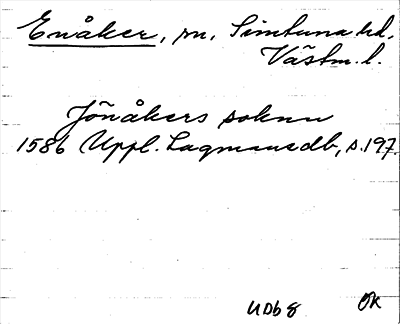 Enåker, sn, Simtuna hd,
Västm. l.
Jönåkers soknn
1586 Uppl. Lagmansdb, s. 197.
UDb 8 OK